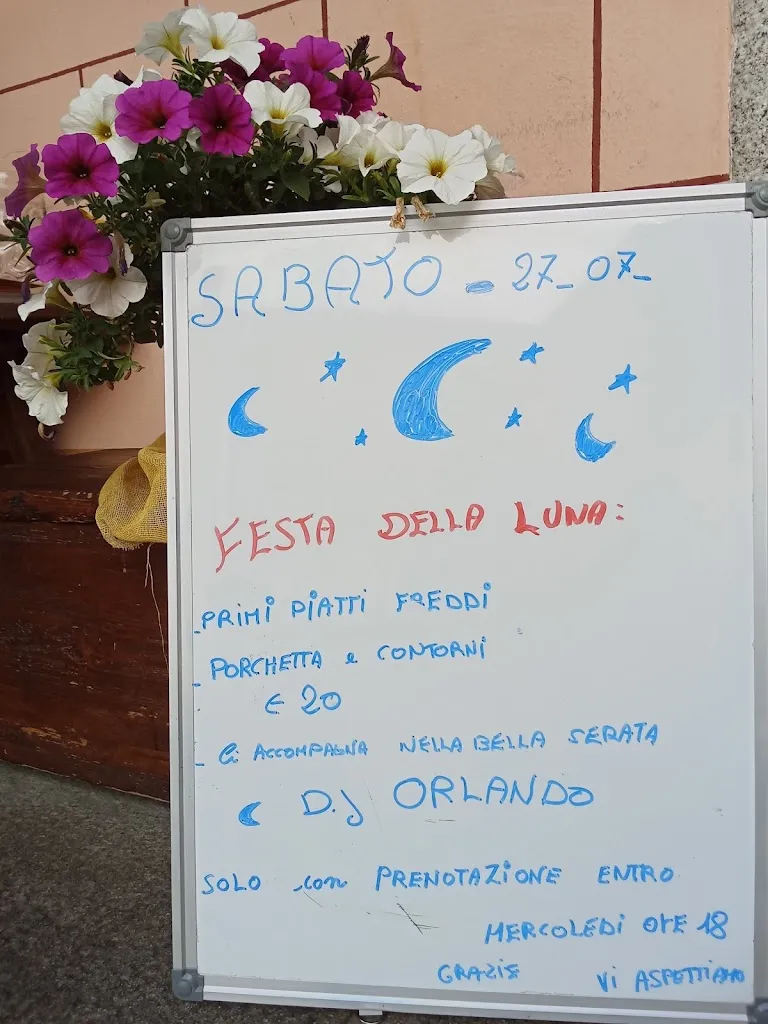 SABATO - 27-07-
FESTA DELLA LUNA:
-PRIMI PIATTI FREDDI
- PORCHETTA e CONTORNI
€ 20
- Ci ACCOMPAGNA NELLA BELLA SERATA
D.J ORLANDO
SOLO con PRENOTAZIONE ENTRO
MERCOLEDI ORE 18
GRAZIE Vi ASPETTIAMO